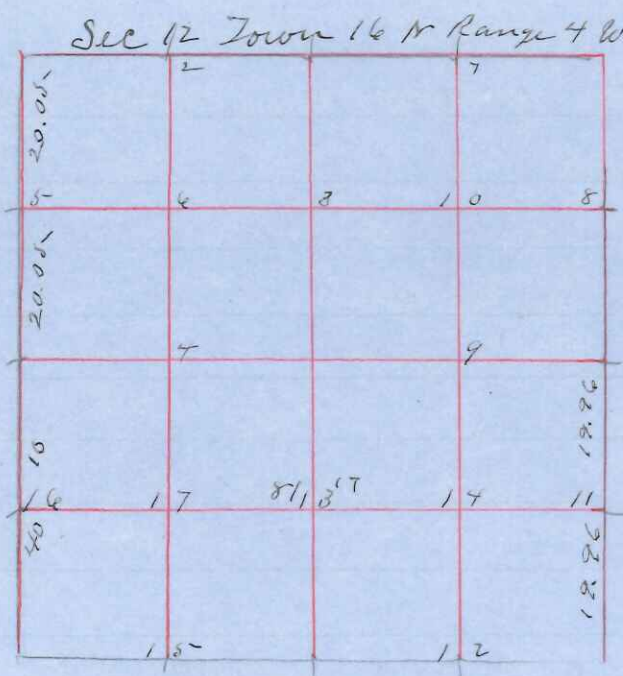 Sec 12 Town 16 N Range 4 W
2 7
20.05
5 6 3 10 8
20.05
4 9
10
19.96
16 17 13 17 14 11
40
19.96
15 12